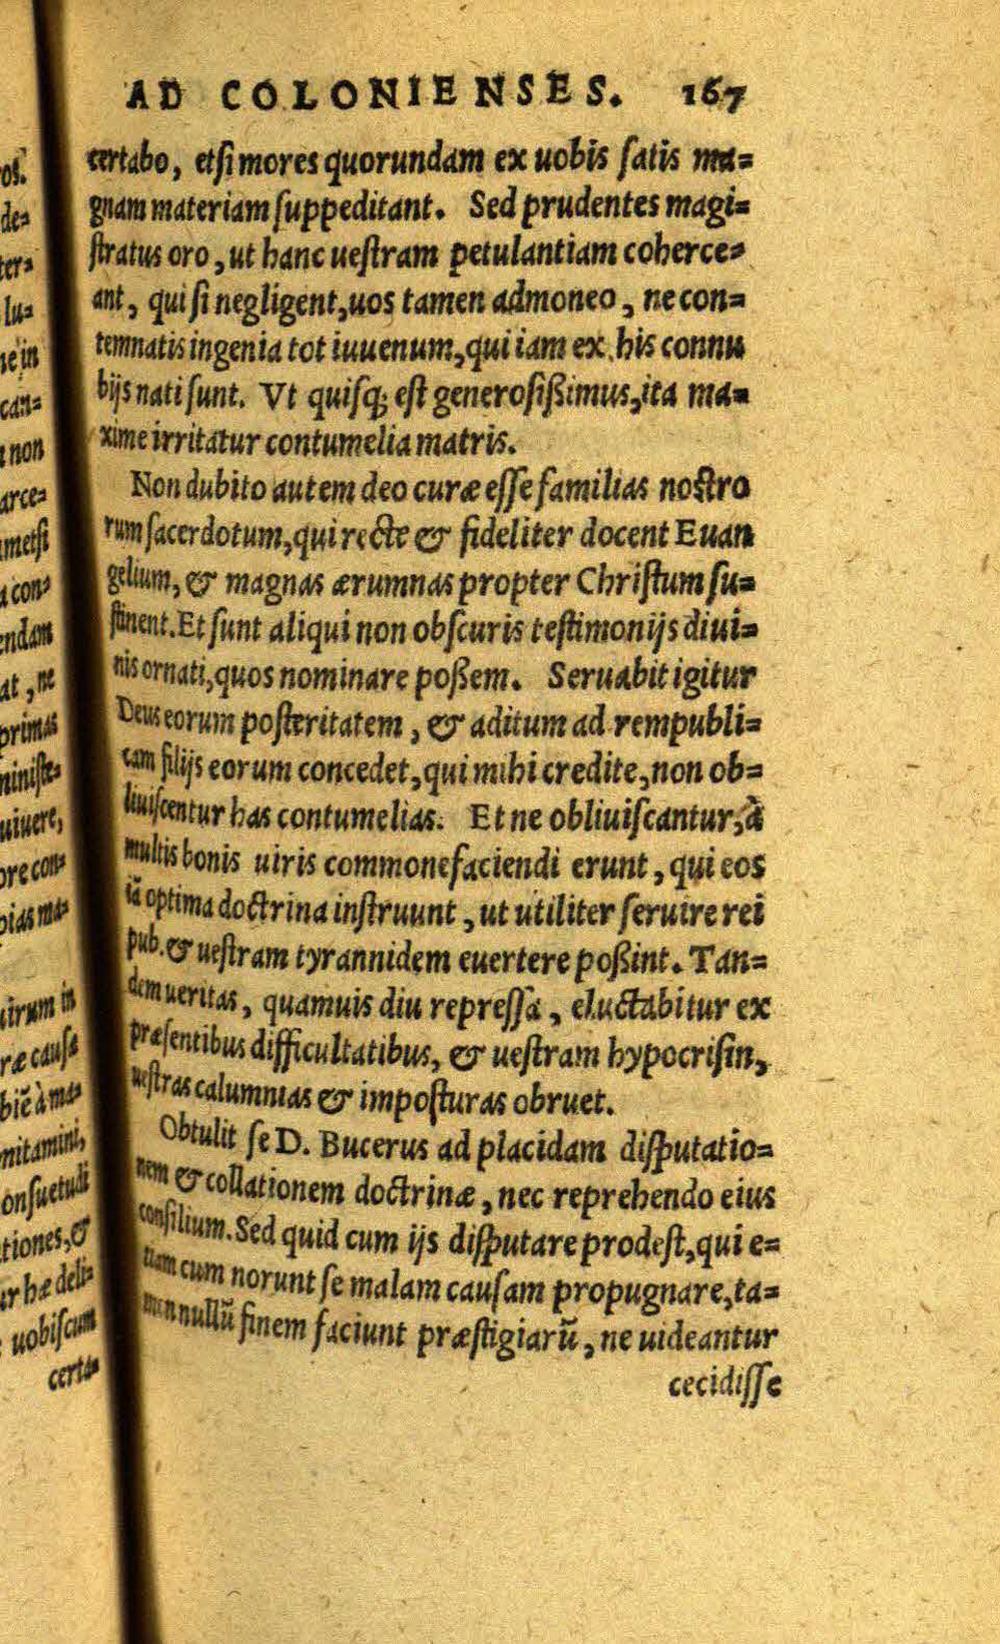 AD COLONIENSES. 167
certabo, etſi mores quorundam ex uobis ſatis ma=
gnam materiam ſuppeditant. Sed prudentes magi=
ſtratus oro, ut hanc ueſtram petulantiam coherce=
ant, qui ſi negligent, uos tamen admoneo, ne con=
temnatis ingenia tot iuuenum, qui iam ex his connu
bijs nati ſunt. Vt quiſq; eſt generoſißimus, ita ma=
xime irritatur contumelia matris.
Non dubito autem deo curæ eſſe familias noſtro
rum ſacerdotum, qui recte & fideliter docent Euan
gelium, & magnas ærumnas propter Chriſtum ſu=
ſtinent. Et ſunt aliqui non obſcuris teſtimonijs diui=
nis ornati, quos nominare poßem. Seruabit igitur
Deus eorum poſteritatem, & aditum ad rempubli=
cam filijs eorum concedet, qui mihi credite, non ob=
liuiſcentur has contumelias. Et ne obliuiſcantur, à
multis bonis uiris commonefaciendi erunt, qui eos
iã optima doctrina inſtruunt, ut utiliter ſeruire rei
pub. & ueſtram tyrannidem euertere poßint. Tan=
dem ueritas, quamuis diu repreſſa, eluctabitur ex
præſentibus difficultatibus, & ueſtram hypocriſin,
ueſtras calumnias & impoſturas obruet.
Obtulit ſe D. Bucerus ad placidam diſputatio=
nem & collationem doctrinæ, nec reprehendo eius
conſilium. Sed quid cum ijs diſputare prodeſt, qui e=
tiam cum norunt ſe malam cauſam propugnare, ta=
men nullũ finem faciunt præſtigiarũ, ne uideantur
cecidiſſe